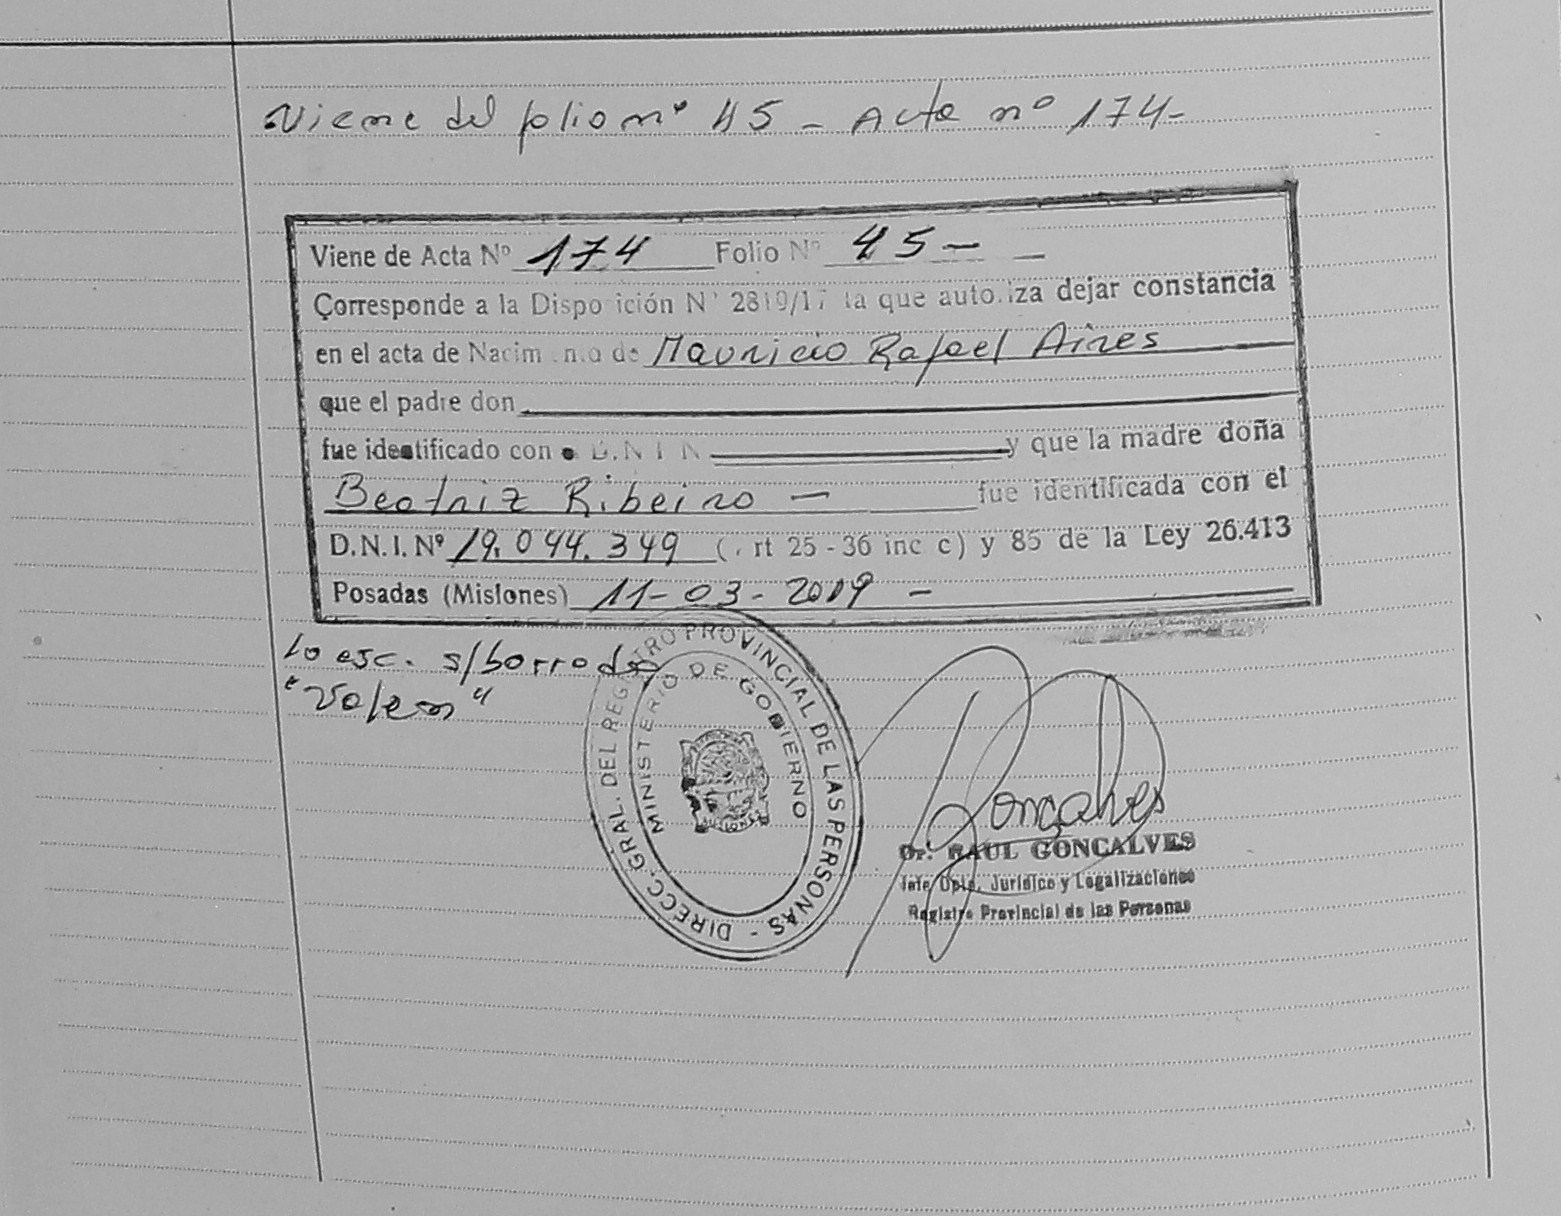 Viene del folio nº 45 - Acta nº 174-
Viene de Acta Nº 174 Folio Nº 45 -
Corresponde a la Disposición Nº 2819/17 la que autoriza dejar constancia
en el acta de Nacimiento de Mauricio Rafael Aires
que el padre don
fue identificado con D.N.I N y que la madre doña
Beatriz Ribeiro - fue identificada con el
D.N.I. Nº 19.044.349 (Art 25 - 36 inc c) y 85 de la Ley 26.413
Posadas (Misiones) 11-03-2019 -
Lo esc. s/borrado
"Valen"
DIRECC. GRAL. DEL REGISTRO PROVINCIAL DE LAS PERSONAS -
MINISTERIO DE GOBIERNO
MISIONES
Goncalves
Dr. RAUL GONCALVES
Jefe Dpto. Jurídico y Legalizaciones
Registro Provincial de las Personas